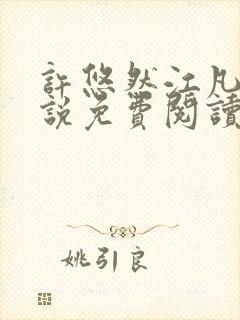 許悠然江凡
說免費閱讀
姚引良